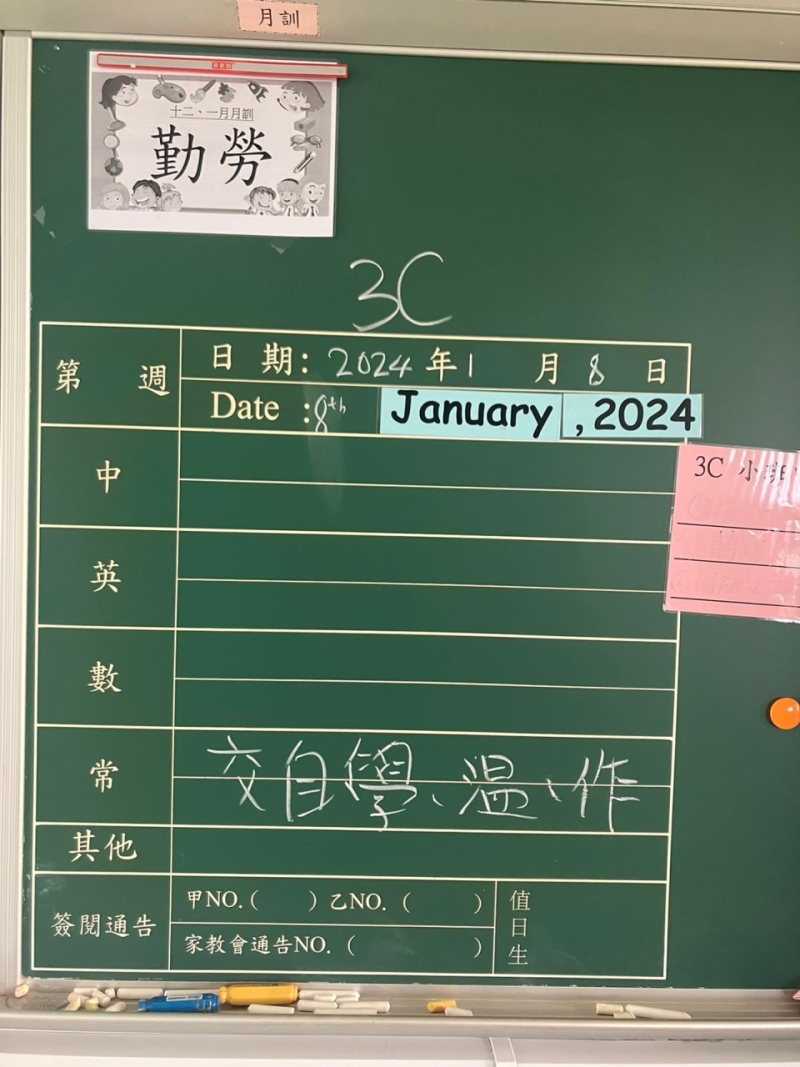 月訓
十二、一月月訓
勤勞
3C
第 週
日 期：2024 年 1 月 8 日
Date : 8th January , 2024
中
3C 小班
英
數
常 交自學、溫、作
其他
簽閱通告 甲NO.( ) 乙NO. ( )
家教會通告NO. ( )
值日生